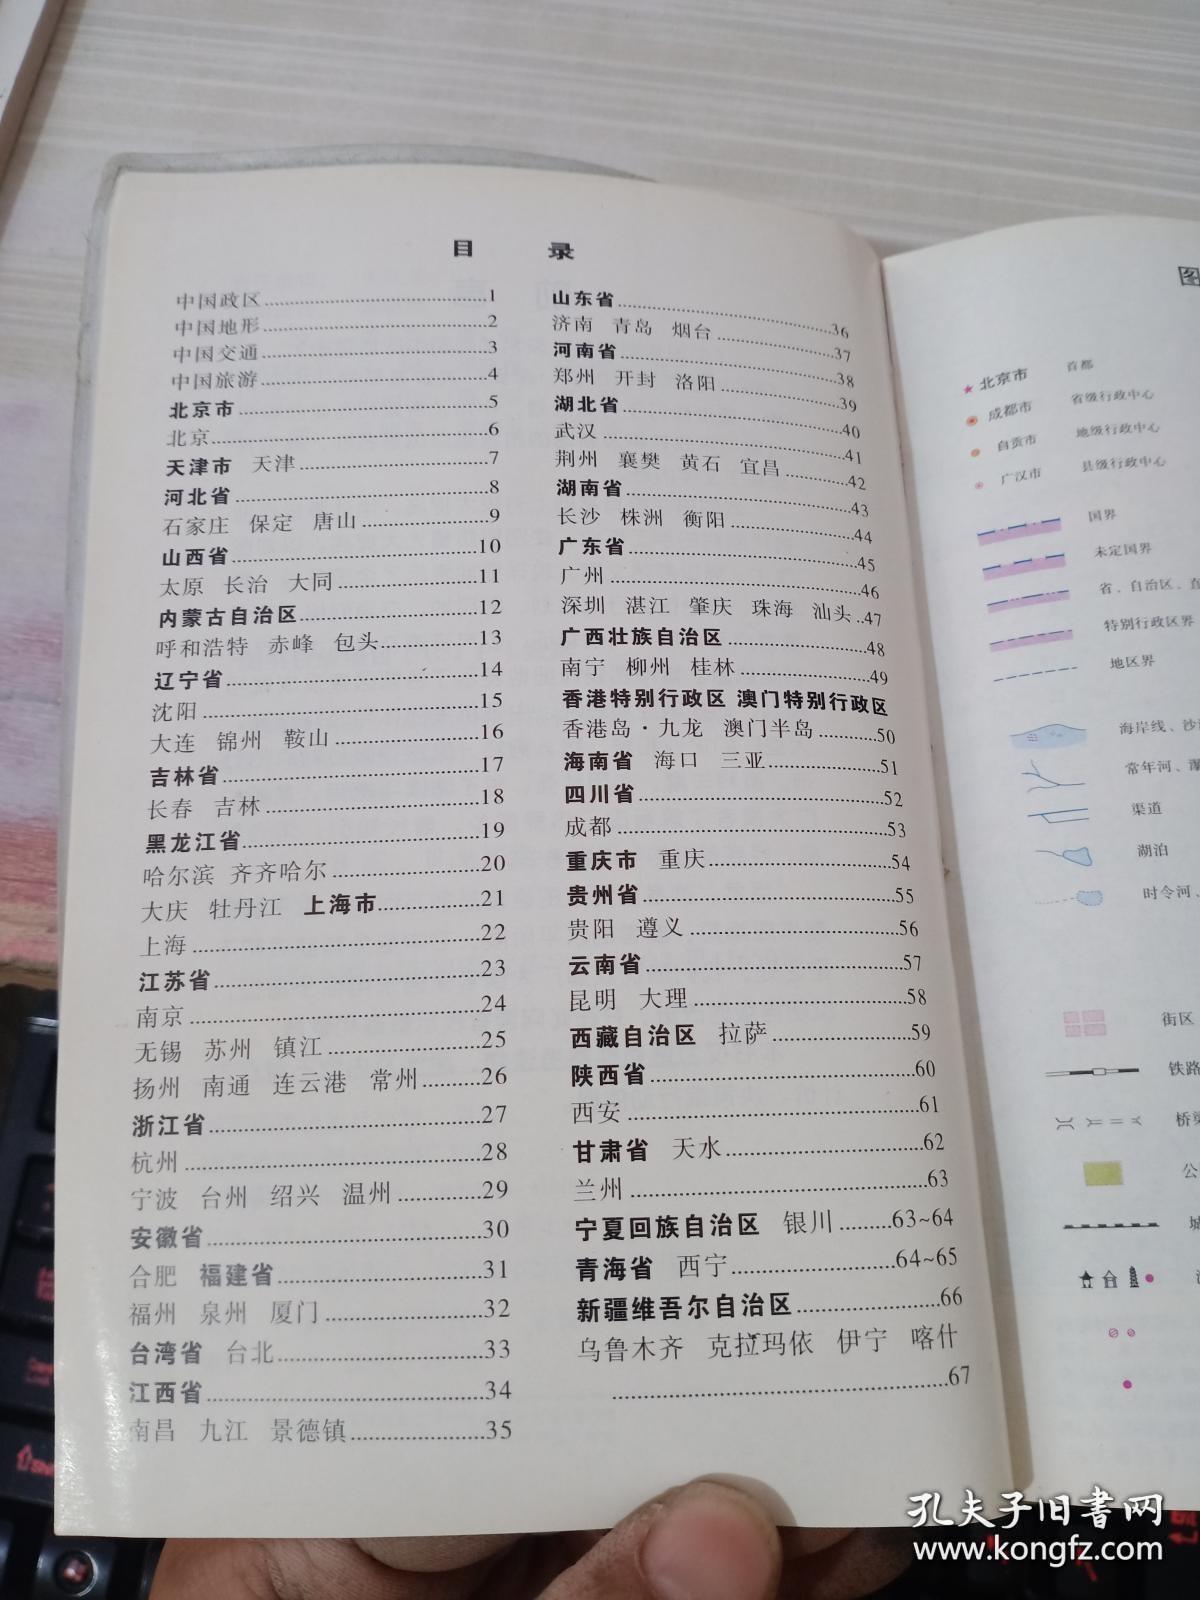 目 录
中国政区……1
中国地形……2
中国交通……3
中国旅游……4
北京市……5
北京……6
天津市 天津……7
河北省……8
石家庄 保定 唐山……9
山西省……10
太原 长治 大同……11
内蒙古自治区……12
呼和浩特 赤峰 包头……13
辽宁省……14
沈阳……15
大连 锦州 鞍山……16
吉林省……17
长春 吉林……18
黑龙江省……19
哈尔滨 齐齐哈尔……20
大庆 牡丹江 上海市……21
上海……22
江苏省……23
南京……24
无锡 苏州 镇江……25
扬州 南通 连云港 常州……26
浙江省……27
杭州……28
宁波 台州 绍兴 温州……29
安徽省……30
合肥 福建省……31
福州 泉州 厦门……32
台湾省 台北……33
江西省……34
南昌 九江 景德镇……35
山东省……36
济南 青岛 烟台……37
河南省……38
郑州 开封 洛阳……39
湖北省……40
武汉……41
荆州 襄樊 黄石 宜昌……42
湖南省……43
长沙 株洲 衡阳……44
广东省……45
广州……46
深圳 湛江 肇庆 珠海 汕头..47
广西壮族自治区……48
南宁 柳州 桂林……49
香港特别行政区 澳门特别行政区
香港岛·九龙 澳门半岛……50
海南省 海口 三亚……51
四川省……52
成都……53
重庆市 重庆……54
贵州省……55
贵阳 遵义……56
云南省……57
昆明 大理……58
西藏自治区 拉萨……59
陕西省……60
西安……61
甘肃省 天水……62
兰州……63
宁夏回族自治区 银川……63~64
青海省 西宁……64~65
新疆维吾尔自治区……66
乌鲁木齐 克拉玛依 伊宁 喀什
……67
图
北京市 首都
成都市 省级行政中心
自贡市 地级行政中心
广汉市 县级行政中心
国界
未定国界
省、自治区、直
特别行政区界
地区界
海岸线、沙
常年河、
渠道
湖泊
时令河、
街区
铁路
桥梁
公
城
孔夫子旧书网
www.kongfz.com